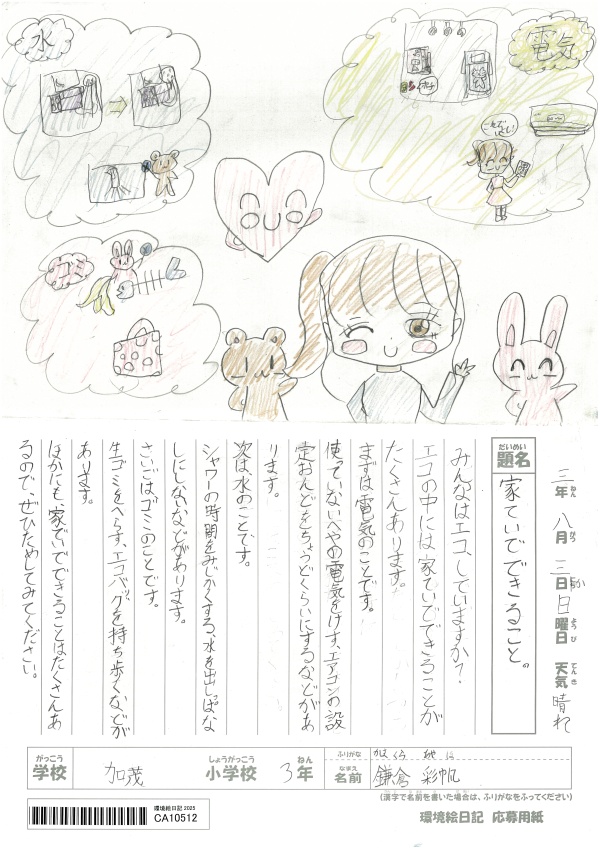 水
電気
これでいいよし!
ゴミ
三年 八月 三日 日曜日 天気 晴れ
ねん がつ にち か ようび てんき
だいめい
題名 家ていでできること。
みんなはエコ、していますか?
エコの中には家ていでできることが
たくさんあります。
まずは電気のことです。
使っていないへやの電気をけす、エアコンの設
定おんどをちょうどくらいにするなどがあ
ります。
次は水のことです。
シャワーの時間をみじかくする、水を出しっぱな
しにしないなどがあります。
さいごはゴミのことです。
生ゴミをへらす、エコバッグを持ち歩くなどが
あります。
ほかにも、家でいでできることはたくさんあ
るので、ぜひためしてみてください。
がっこう しょうがっこう ねん
学校 加茂 小学校 3年
ふりがな かまくら
なまえ
名前 鎌倉 彩帆
(漢字で名前を書いた場合は、ふりがなをふってください)
環境絵日記 2025
CA10512
環境絵日記 応募用紙